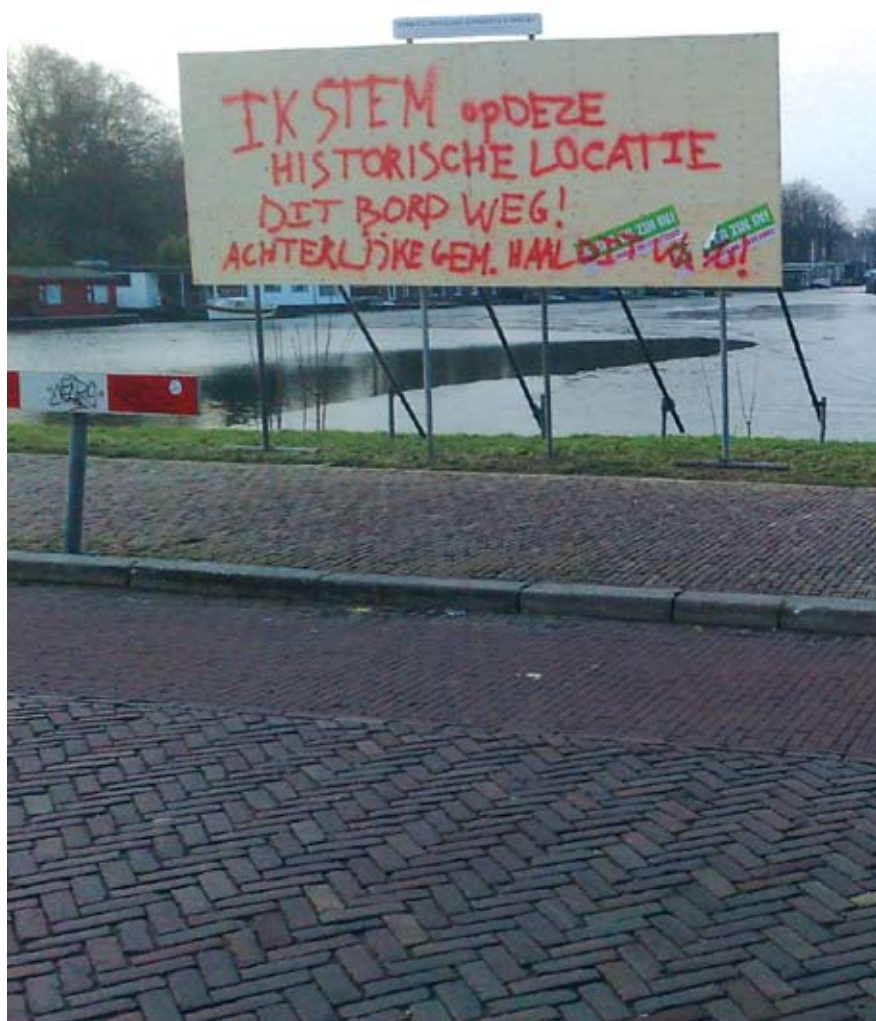 IK STEM opDEZE
HISTORISCHE LOCATIE
DIT BORD WEG!
ACHTERLIJKE GEM. HAAL DIT WEG!